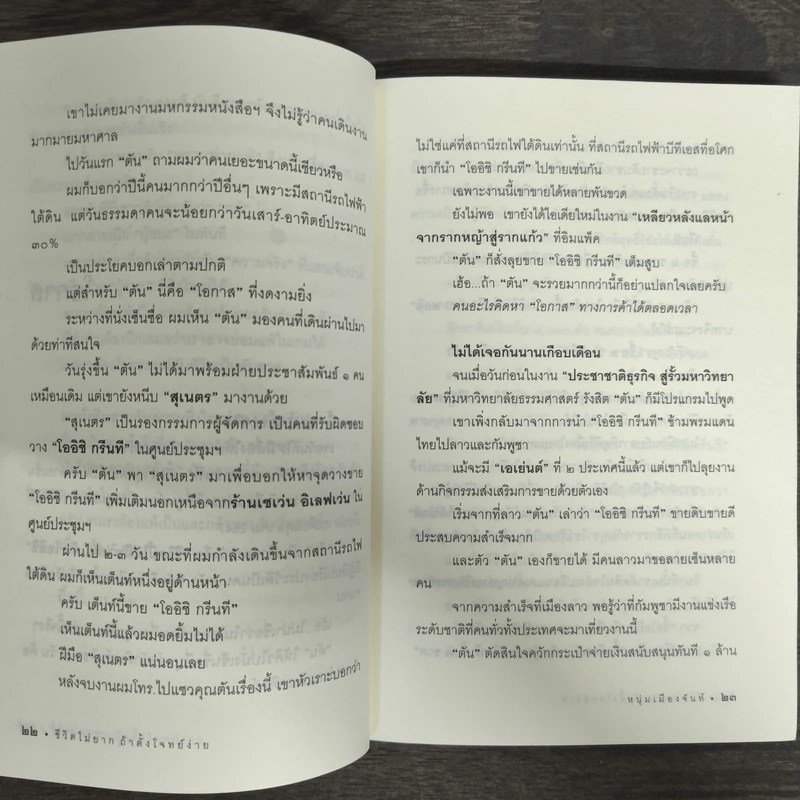 เขาไม่เคยมางานมหกรรมหนังสือฯ จึงไม่รู้ว่าคนเดินงาน
มากมายมหาศาล
ไปวันแรก “ตัน” ถามผมว่าคนเยอะขนาดนี้เชียวหรือ
ผมก็บอกว่าปีนี้คนมากกว่าปีอื่นๆ เพราะมีสถานีรถไฟฟ้า
ใต้ดิน แต่วันธรรมดาคนจะน้อยกว่าวันเสาร์-อาทิตย์ประมาณ
๓๐%
เป็นประโยคบอกเล่าตามปกติ
แต่สำหรับ “ตัน” นี่คือ “โอกาส” ที่งดงามยิ่ง
ระหว่างที่นั่งเซ็นชื่อ ผมเห็น “ตัน” มองคนที่เดินผ่านไปมา
ด้วยท่าทีสนใจ
วันรุ่งขึ้น “ตัน” ไม่ได้มาพร้อมฝ่ายประชาสัมพันธ์ ๑ คน
เหมือนเดิม แต่เขายังหนีบ “สุเนตร” มางานด้วย
“สุเนตร” เป็นรองกรรมการผู้จัดการ เป็นคนที่รับผิดชอบ
วาง “โออิชิ กรีนที” ในศูนย์ประชุมฯ
ครับ “ตัน” พา “สุเนตร” มาเพื่อบอกให้หาจุดวางขาย
“โออิชิ กรีนที” เพิ่มเติมนอกเหนือจากร้านเซเว่น อิเลฟเว่น ใน
ศูนย์ประชุมฯ
ผ่านไป ๒-๓ วัน ขณะที่ผมกำลังเดินขึ้นจากสถานีรถไฟ
ใต้ดิน ผมก็เห็นเต็นท์หนึ่งอยู่ด้านหน้า
ครับ เต็นท์นี้ขาย “โออิชิ กรีนที”
เห็นเต็นท์นี้แล้วผมอดยิ้มไม่ได้
ฝีมือ “สุเนตร” แน่นอนเลย
หลังจบงานผมโทร.ไปแซวคุณตันเรื่องนี้ เขาหัวเราะบอกว่า
๒๒ • ชีวิตไม่ยาก ถ้าตั้งโจทย์ง่าย
ไม่ใช่แค่ที่สถานีรถไฟใต้ดินเท่านั้น ที่สถานีรถไฟฟ้าบีทีเอสที่อโศก
เขาก็นำ “โออิชิ กรีนที” ไปขายเช่นกัน
เฉพาะงานนี้เขาขายได้หลายพันขวด
ยังไม่พอ เขายังได้ไอเดียใหม่ในงาน “เหลียวหลังแลหน้า
จากรากหญ้าสู่รากแก้ว” ที่อิมแพ็ค
“ตัน” ก็สั่งลุยขาย “โออิชิ กรีนที” เต็มสูบ
เฮ้อ...ถ้า “ตัน” จะรวยมากกว่านี้ก็อย่าแปลกใจเลยครับ
คนอะไรคิดหา “โอกาส” ทางการค้าได้ตลอดเวลา
ไม่ได้เจอกันนานเกือบเดือน
จนเมื่อวันก่อนในงาน “ประชาชาติธุรกิจ สู่รั้วมหาวิทยา
ลัย” ที่มหาวิทยาลัยธรรมศาสตร์ รังสิต “ตัน” ก็มีโปรแกรมไปพูด
เขาเพิ่งกลับมาจากการนำ “โออิชิ กรีนที” ข้ามพรมแดน
ไทยไปลาวและกัมพูชา
แม้จะมี “เอเย่นต์” ที่ ๒ ประเทศนี้แล้ว แต่เขาก็ไปลุยงาน
ด้านกิจกรรมส่งเสริมการขายด้วยตัวเอง
เริ่มจากที่ลาว “ตัน” เล่าว่า “โออิชิ กรีนที” ขายดิบขายดี
ประสบความสำเร็จมาก
และตัว “ตัน” เองก็ขายได้ มีคนลาวมาขอลายเซ็นหลาย
คน
จากความสำเร็จที่เมืองลาว พอรู้ว่าที่กัมพูชามีงานแข่งเรือ
ระดับชาติที่คนทั่วทั้งประเทศจะมาเที่ยวงานนี้
“ตัน” ตัดสินใจควักกระเป๋าจ่ายเงินสนับสนุนทันที ๑ ล้าน
หนุ่มเมืองจันท์ • ๒๓